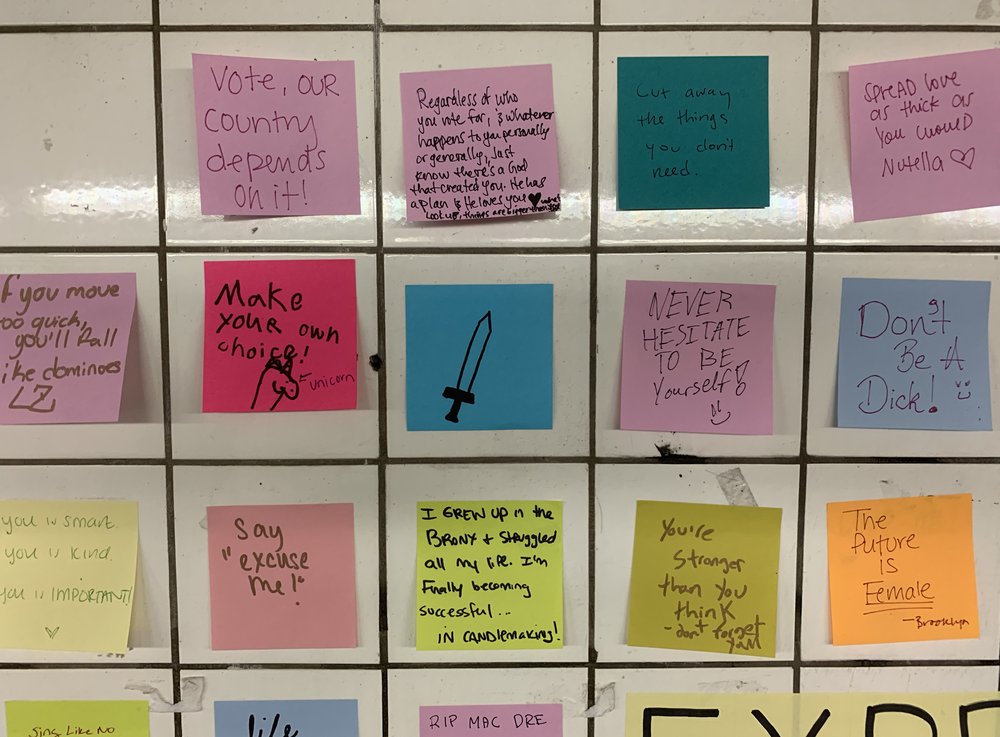 VOTE, OUR
Country
depends
on it!
Regardless of who
you vote for, & whatever
happens to you personally
or generally, Just
know there's a God
that created you. He has
a plan & He loves you
Look up, things are bigger than
Cut away
the things
you don't
need.
SPREAD LOVE
as thick as
you would
Nutella
f you move
oo quick,
you'll fall
ike dominoes
Make
your own
choice!
unicorn
NEVER
HESITATE
TO BE
Yourself!
Don't
Be A
Dick!
you is smart.
you is kind.
you is IMPORTANT!
Say
"excuse
me!"
I GREW UP in the
BRONX + Struggled
all my life. I'm
Finally becoming
successful...
IN CANDLEMAKING!
You're
Stronger
than you
think
- don't forget
The
Future
is
Female
-Brooklyn
Sing Like No
life
RIP MAC DRE